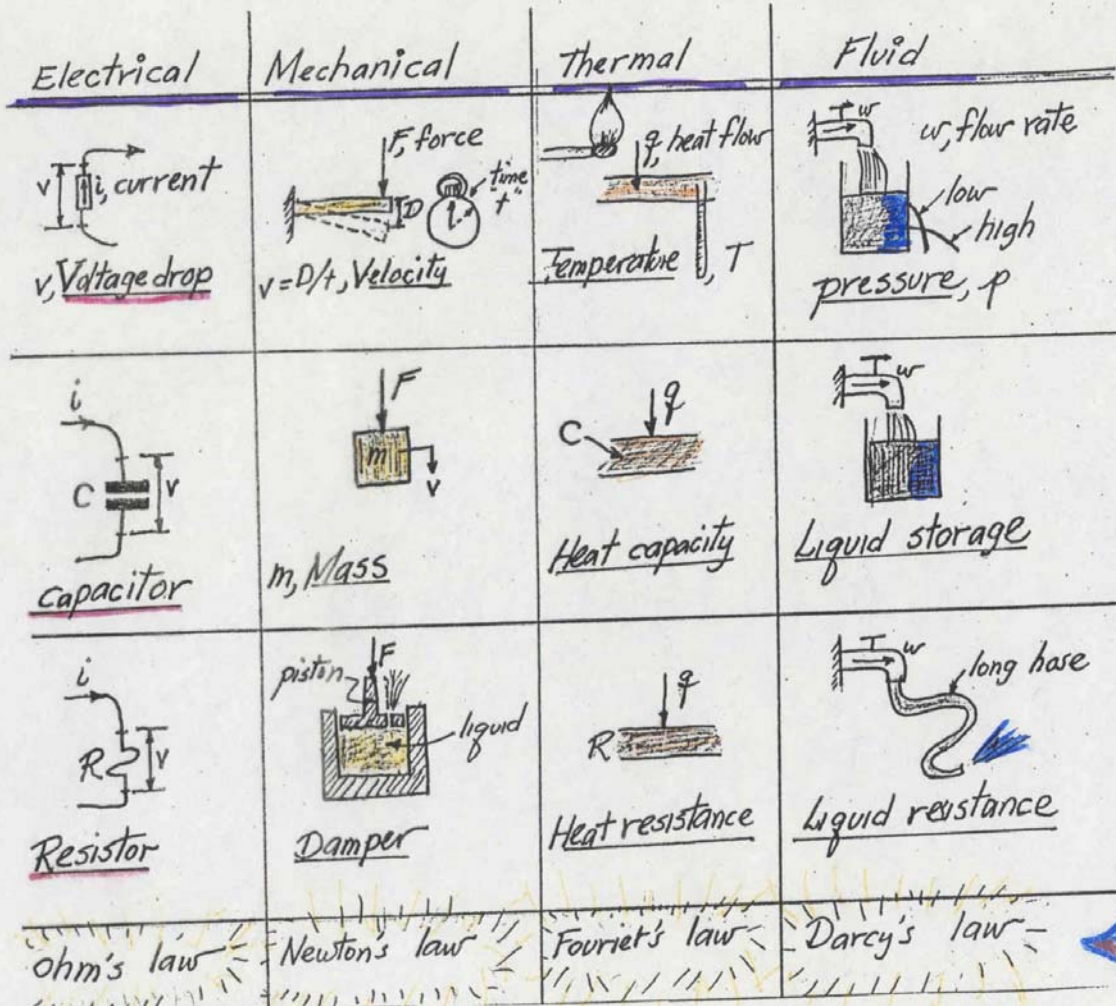 Electrical Mechanical Thermal Fluid
v i, current
v, Voltage drop
F, force
D time "t"
v=D/t, Velocity
q, heat flow
Temperature T
w w, flow rate
low
high
pressure, p
i
C v
capacitor
F
m
v
m, Mass
q
C
Heat capacity
w
Liquid storage
i
R v
Resistor
F
piston
liquid
Damper
q
R
Heat resistance
w
long hose
Liquid resistance
Ohm's law Newton's law Fouriet's law Darcy's law